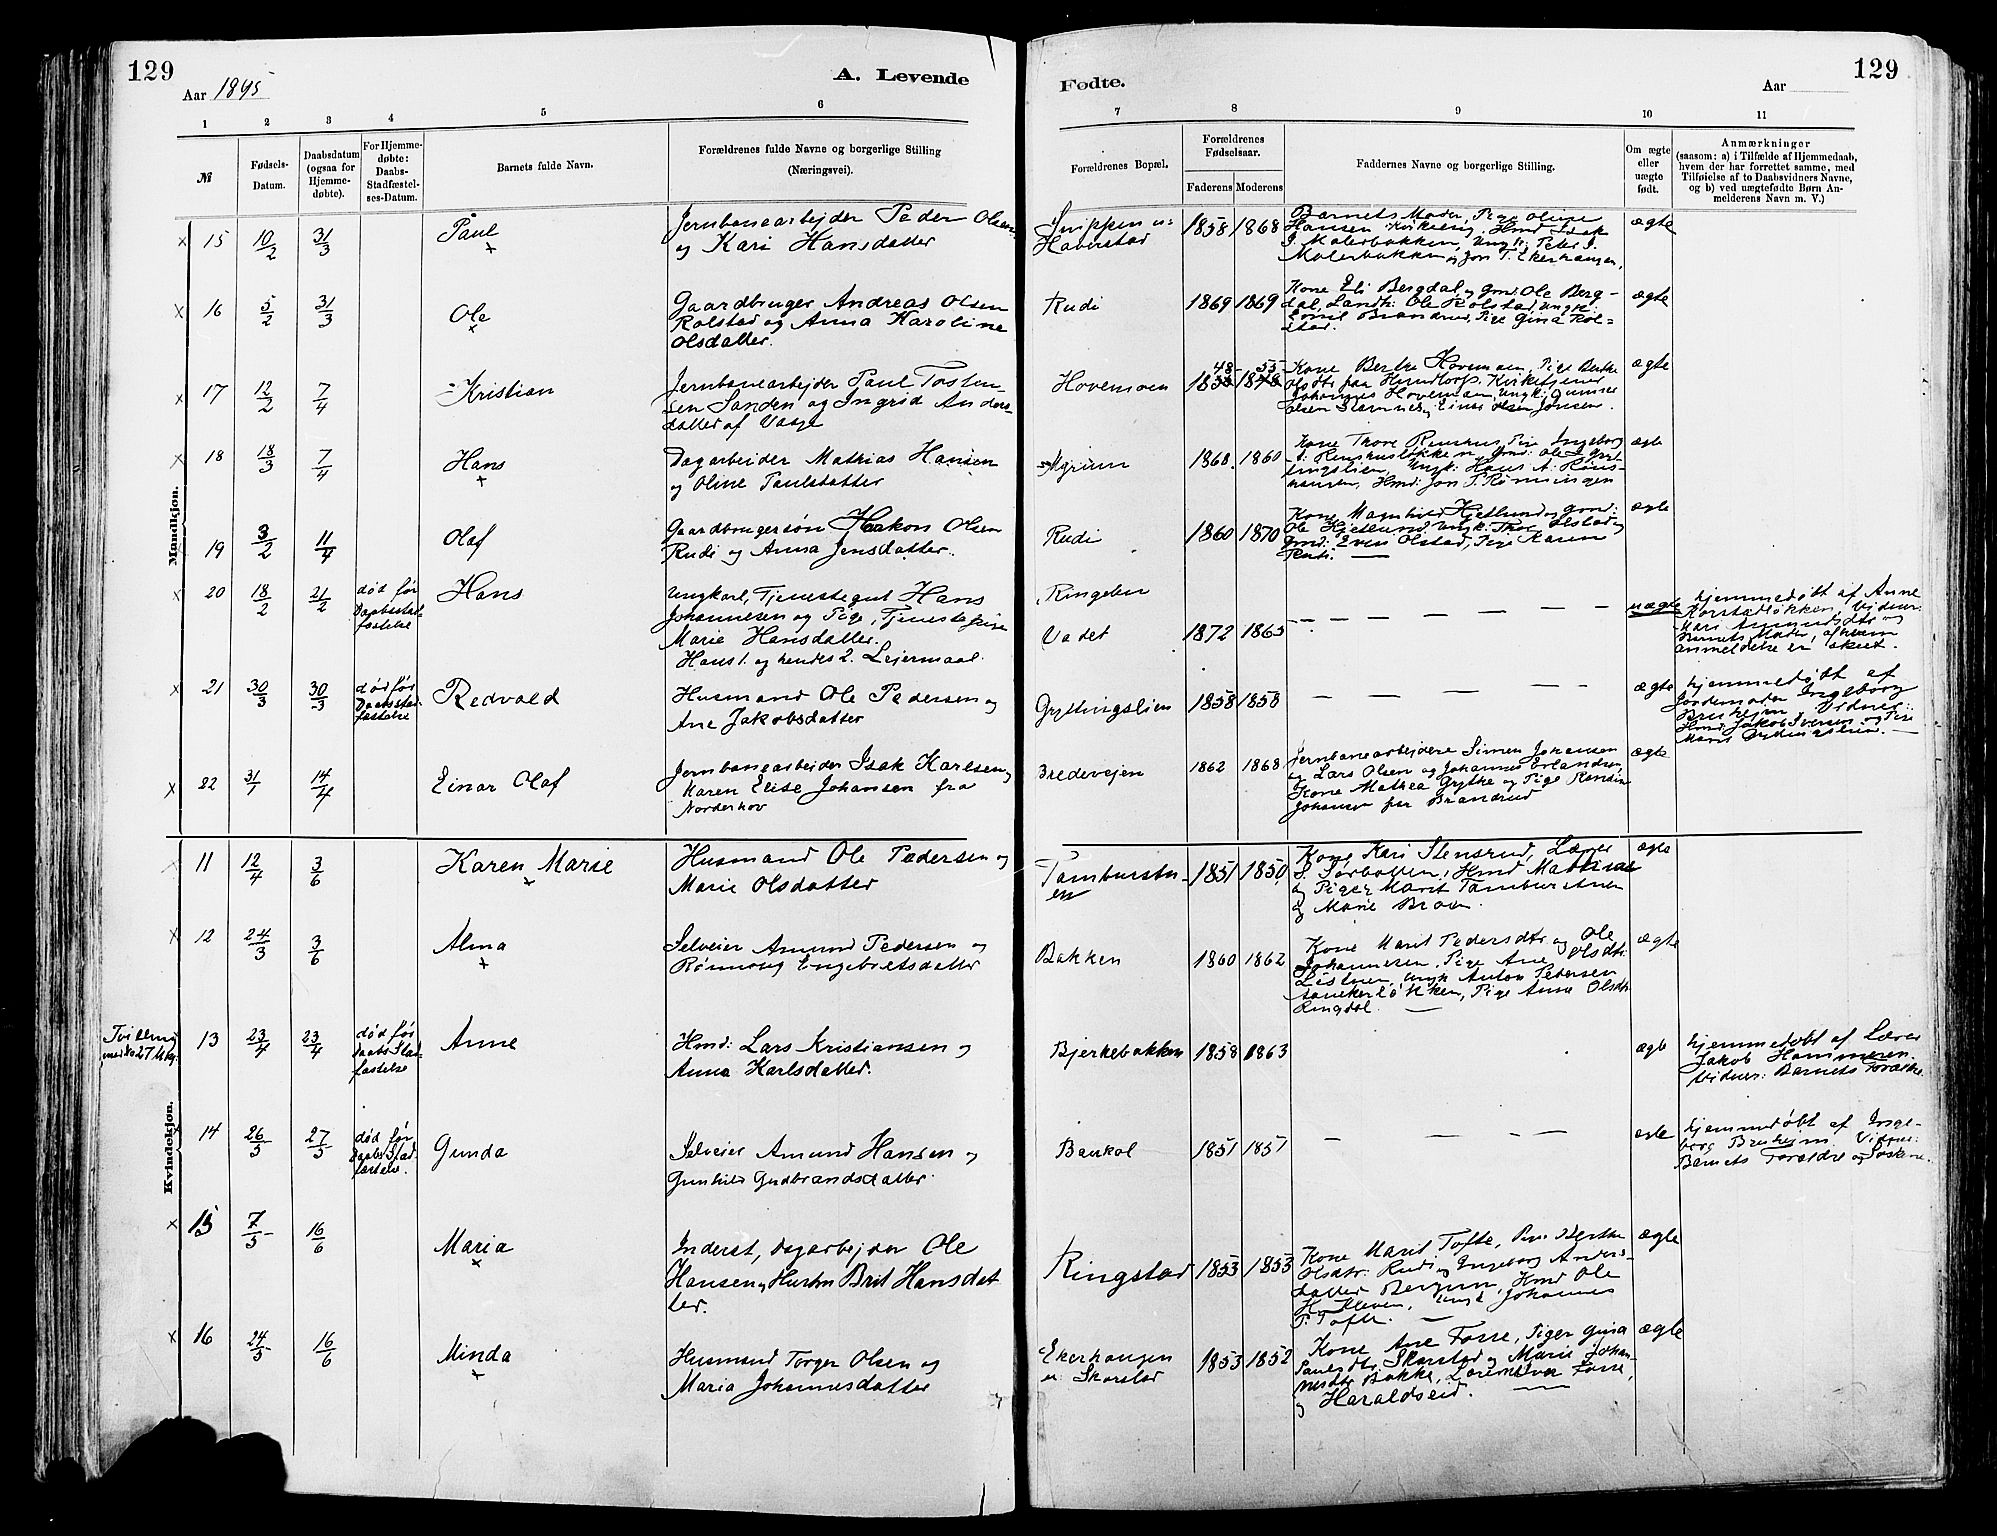 129
Aar 1895
A. Levende
Fødte.
Aar
129
1 2 3 4 5 6
7 8 9 10 11
№
Fødsels-
Datum.
Daabsdatum
(ogsaa for
Hjemme-
døbte).
For Hjemme-
døbte:
Daabs-
Stadfæstel-
ses-Datum.
Barnets fulde Navn.
Forældrenes fulde Navne og borgerlige Stilling
(Næringsvei).
Forældrenes Bopæl.
Forældrenes
Fødselsaar.
Faderens Moderens
Faddernes Navne og borgerlige Stilling.
Om ægte
eller
uægte
født.
Anmærkninger
(saasom: a) i Tilfælde af Hjemmedaab,
hvem der har forrettet samme, med
Tilføielse af to Daabsvidners Navne,
og b) ved uægtefødte Børn An-
melderens Navn m. V.)
Mandkjøn.
15 10/2 31/3 Paul
Jernbanearbejder Peder Olsen
og Kari Hansdatter
Haverstad
1858 1868
Barnets Moder, Pige Oline
Hansen
Malerbakken, Ungk: Peter J.
Malerbakken og Jon T. Ekerhaugen,
ægte
16 5/2 31/3 Ole
Gaardbruger Andreas Olsen
Kolstad og Anna Karoline
Olsdatter.
Rudi
1869 1869
Kone Eli Bergdal, og gmd: Ole Berg-
dal, Landh: Ole Kolstad, Ungk:
Emil Brandrud, Pige Gina Kol-
stad.
ægte
17 12/2 7/4 Kristian
Jernbanearbejder Paul Tosten-
sen Sanden og Ingrid Anders-
datter af Vaage
Hovemoen
48 55
Kone Berthe Hovemoen, Pige Berthe
Olsdtr paa Hundtorp, Kirketjener
Johannes Hovemoen, Ungk: Gunner
Olsen Stamnes, Einar Olsen Jonsen.
ægte
18 18/3 7/4 Hans
Dagarbeider Mathias Hansen
og Oline Paulsdatter
1868 1860
Kone Thore Renshus, Pige Ingeborg
ægte
19 3/2 11/4 Olaf
Gaardbrugersøn Haakon Olsen
Rudi og Anna Jensdatter.
Rudi
1860 1870
Kone Magnhild Hjetlund og gmd:
Ole Hjetlund, Ungk: Thor Olstad og
gmd: Even Olstad, Pige Karen
Rudi.
ægte
20 18/2 21/2 død før
Daabsstad-
fæstelse
Hans
Ungkarl, Tjenestegut Hans
Johannesen og Pige, Tjenestepige
Marie Hansdatter.
Hans 1. og hendes 2. Leiermaal.
Ringebu
Vadet
1872 1865
uægte
hjemmedøbt af Anne
Korstadløkken, Vidner:
Kari Amundsdtr og
Barnets Moder, af hvem
anmeldelse er skeet.
21 30/3 30/3 død før
Daabsstad-
fæstelse
Redvald
Husmand Ole Pedersen og
Ane Jakobsdatter
Gryttingslien
1858 1858
ægte
hjemmedøbt af
Jordemoder Ingeborg
Brekheim Vidner:
Hmd: Jakob Iversen og Pige
Marit Gryttingslien.
22 31/1 14/4 Einar Olaf
Jernbanearbejder Isak Karlsen og
Karen Elise Johansen fra
Norderhov
Bredevejen
1862 1868
Jernbanearbejdere Simen Johansen
og Lars Olsen og Johannes Erlandsen
Kone Mathea Grythe og Pige Randine
Johansen paa Brandrud
ægte
11 12/4 3/6 Karen Marie
Husmand Ole Pedersen og
Marie Olsdatter
Tambursta-
en
1851 1850
Kone Kari Stensrud, Lærer
og Piger Marit Tamburstuen
og Marie Braaen.
ægte
12 24/3 3/6 Alma
Selveier Amund Pedersen og
Rønnaug Engebretsdatter
Bakken
1860 1862
Kone Marit Pedersdtr og Ole
Johannesen, Pige Ane Olsdtr
Listuen, Ungk Anton Pedersen
Pige Anne Olsdtr
Ringdal.
ægte
Tvilling
med No 27 Mkj.
13 23/4 23/4 død før
Daabs Stad-
fæstelse
Anne
Hmd: Lars Kristiansen og
Anna Karlsdatter.
Bjerkebakken
1858 1863
ægte
hjemmedøbt af Lærer
Jakob Hammeren.
Vidner: Barnets Forældre.
Kvindekjøn.
14 26/5 27/5 død før
Daabs Stad-
fæstelse.
Gunda
Selveier Amund Hansen og
Gunhild Gudbrandsdatter.
Baukol
1851 1851
ægte
hjemmedøbt af Inge-
borg Brekheim. Vidner:
Barnets Forældre og Søskene.
15 7/5 16/6 Maria
Inderst, dagarbejder Ole
Hansen og Hustru Brit Hansdat
ter.
Ringstad
1853 1853
Kone Marit Tofte, Pige Berthe
Olsdtr: Rudi og Ingeborg Anders-
datter Bergum, Hmd Ole
H. Kleven, Ungk Johannes
P. Tofte.
ægte
16 24/5 16/6 Minda
Husmand Torger Olsen og
Maria Johannesdatter
Ekerhaugen
u: Skarstad
1853 1852
Kone Ane Fosse, Piger Gina
Paulsdtr Skarstad og Marie Johan-
nesdtr Bakke,
og Haraldseid.
ægte